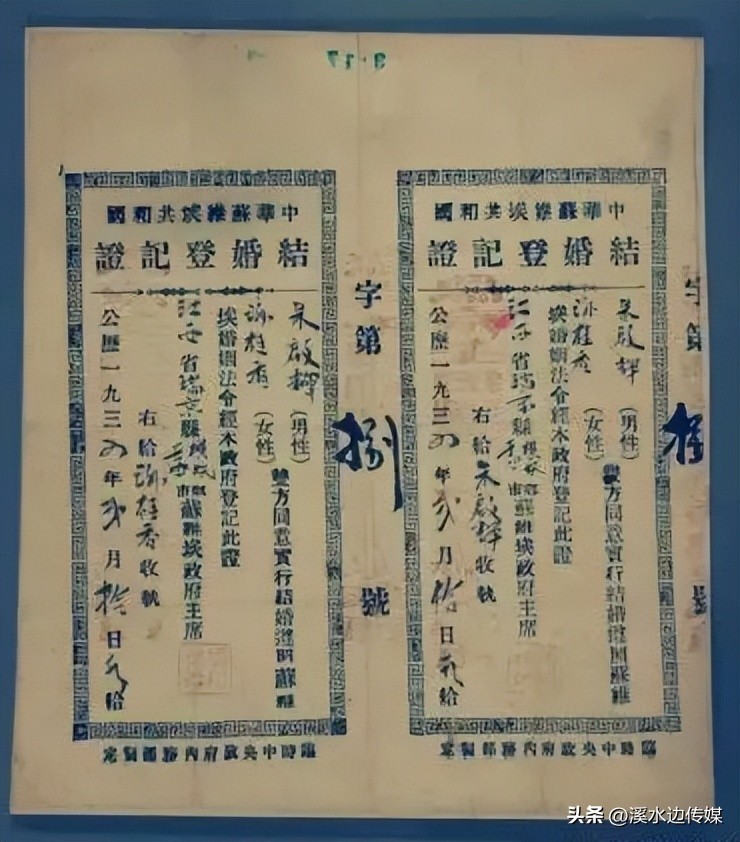 3 17
字第捌號
中華蘇維埃共和國
結婚登記證
朱啟輝(男性)
桂香(女性)
雙方同意實行結婚遵照蘇維
埃婚姻法令經本政府登記此證
江西省瑞京縣 市蘇維埃政府主席
右給朱啟輝收
公歷一九三四年貳月拾日 給
臨時中央政府內務部製定
字第捌號
中華蘇維埃共和國
結婚登記證
朱啟輝(男性)
桂香(女性)
雙方同意實行結婚遵照蘇維
埃婚姻法令經本政府登記此證
江西省瑞京縣 市蘇維埃政府主席
右給 桂香收
公歷一九三四年貳月拾日 給
臨時中央政府內務部製定
头条 @溪水边传媒